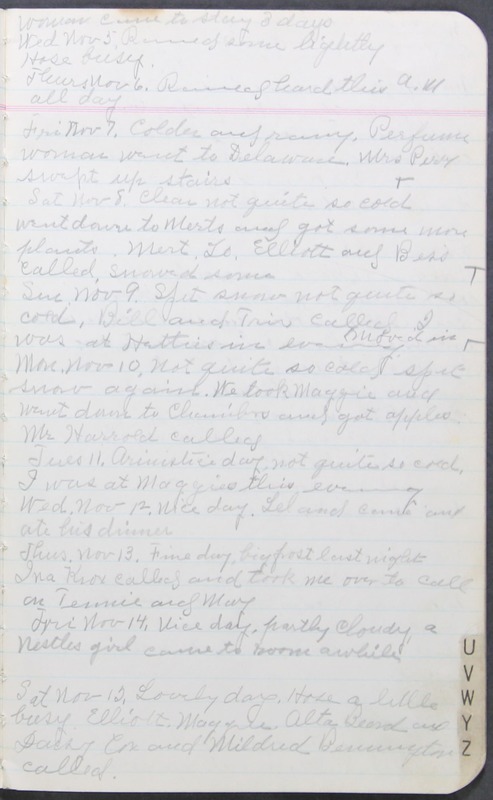 woman came to stay 3 days
Wed Nov 5, Rained some lightly
Hose busy.
Thurs Nov 6. Rained hard this A.M
all day
Fri Nov 7. Colder and rainy. Perfume
woman went to Delaware. Mrs Perry
swept up stairs
Sat Nov 8. Clear not quite so cold
went down to Merts and got some more
plants. Mert, Lo, Elliott and Bess
called, snowed some
Sun, Nov 9. Spit snow not quite so
cold, Bill and Trix called. I
was at Hatties in evening moved in
Mon. Nov 10, Not quite so cold, spit
snow again. We took Maggie and
went down to and got apples.
Mr Harrold called
Tues 11. Armistice day, not quite so cold,
I was at Maggies this evening
Wed, Nov 12, Nice day. Leland came and
ate his dinner
Thus. Nov 13. Fine day, big frost last night
Ina Knox called and took me over to call
on Tennie and Mary
Fri Nov 14. Nice day, partly cloudy, a
Nestles girl came to room awhile
Sat Nov 15, Lovely day. Hose a little
busy. Elliott. Maggie Alta and
Daisy Cox and Mildred Pennington
called.
U
V
W
Y
Z